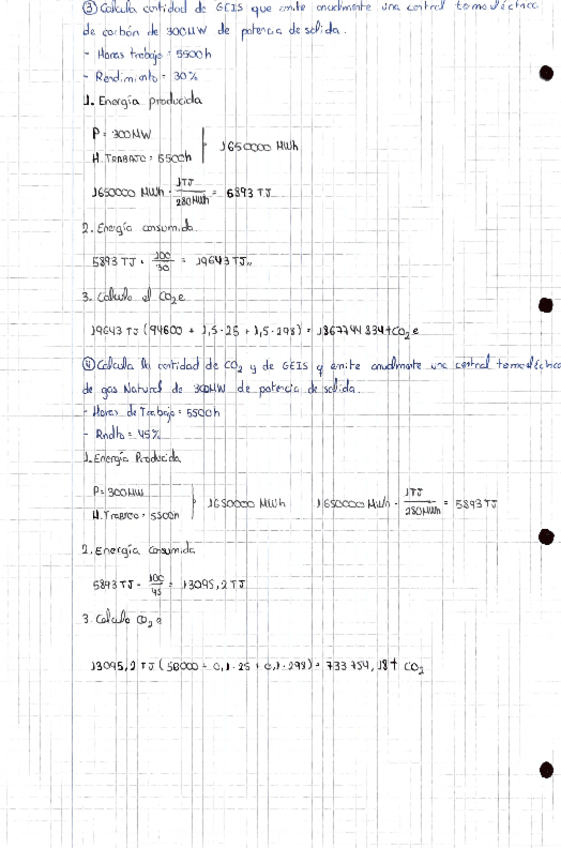 ③ Calcula cantidad de GEIS que emite anualmente una central termoeléctrica
de carbón de 300MW de potencia de salida.
- Horas trabajo = 5500h
- Rendimiento = 30%
1. Energía producida
P = 300MW
H. TRABAJO = 5500h
1650000 MWh
1650000 MWh · 1TJ / 280MWh = 5893 TJ
2. Energía consumida.
5893 TJ · 100/30 = 19643 TJ
3. Calculo el CO2e
19643 TJ (94600 + 1,5·25 + 1,5·298) = 1867744834 t CO2e
④ Calcula la cantidad de CO2 y de GEIS q emite anualmente una central termoeléctrica
de gas Natural de 300MW de potencia de salida.
- Horas de Trabajo = 5500h
- Rndto = 45%
1. Energía Producida
P = 300MW
H. TRABAJO = 5500h
1650000 MWh 1650000 MWh · 1TJ / 280MWh = 5893TJ
2. Energía Consumida
5893 TJ · 100/45 = 13095,2 TJ
3. Calculo CO2e
13095,2 TJ (56000 + 0,1·25 + 0,1·298) = 733754,18 t CO2